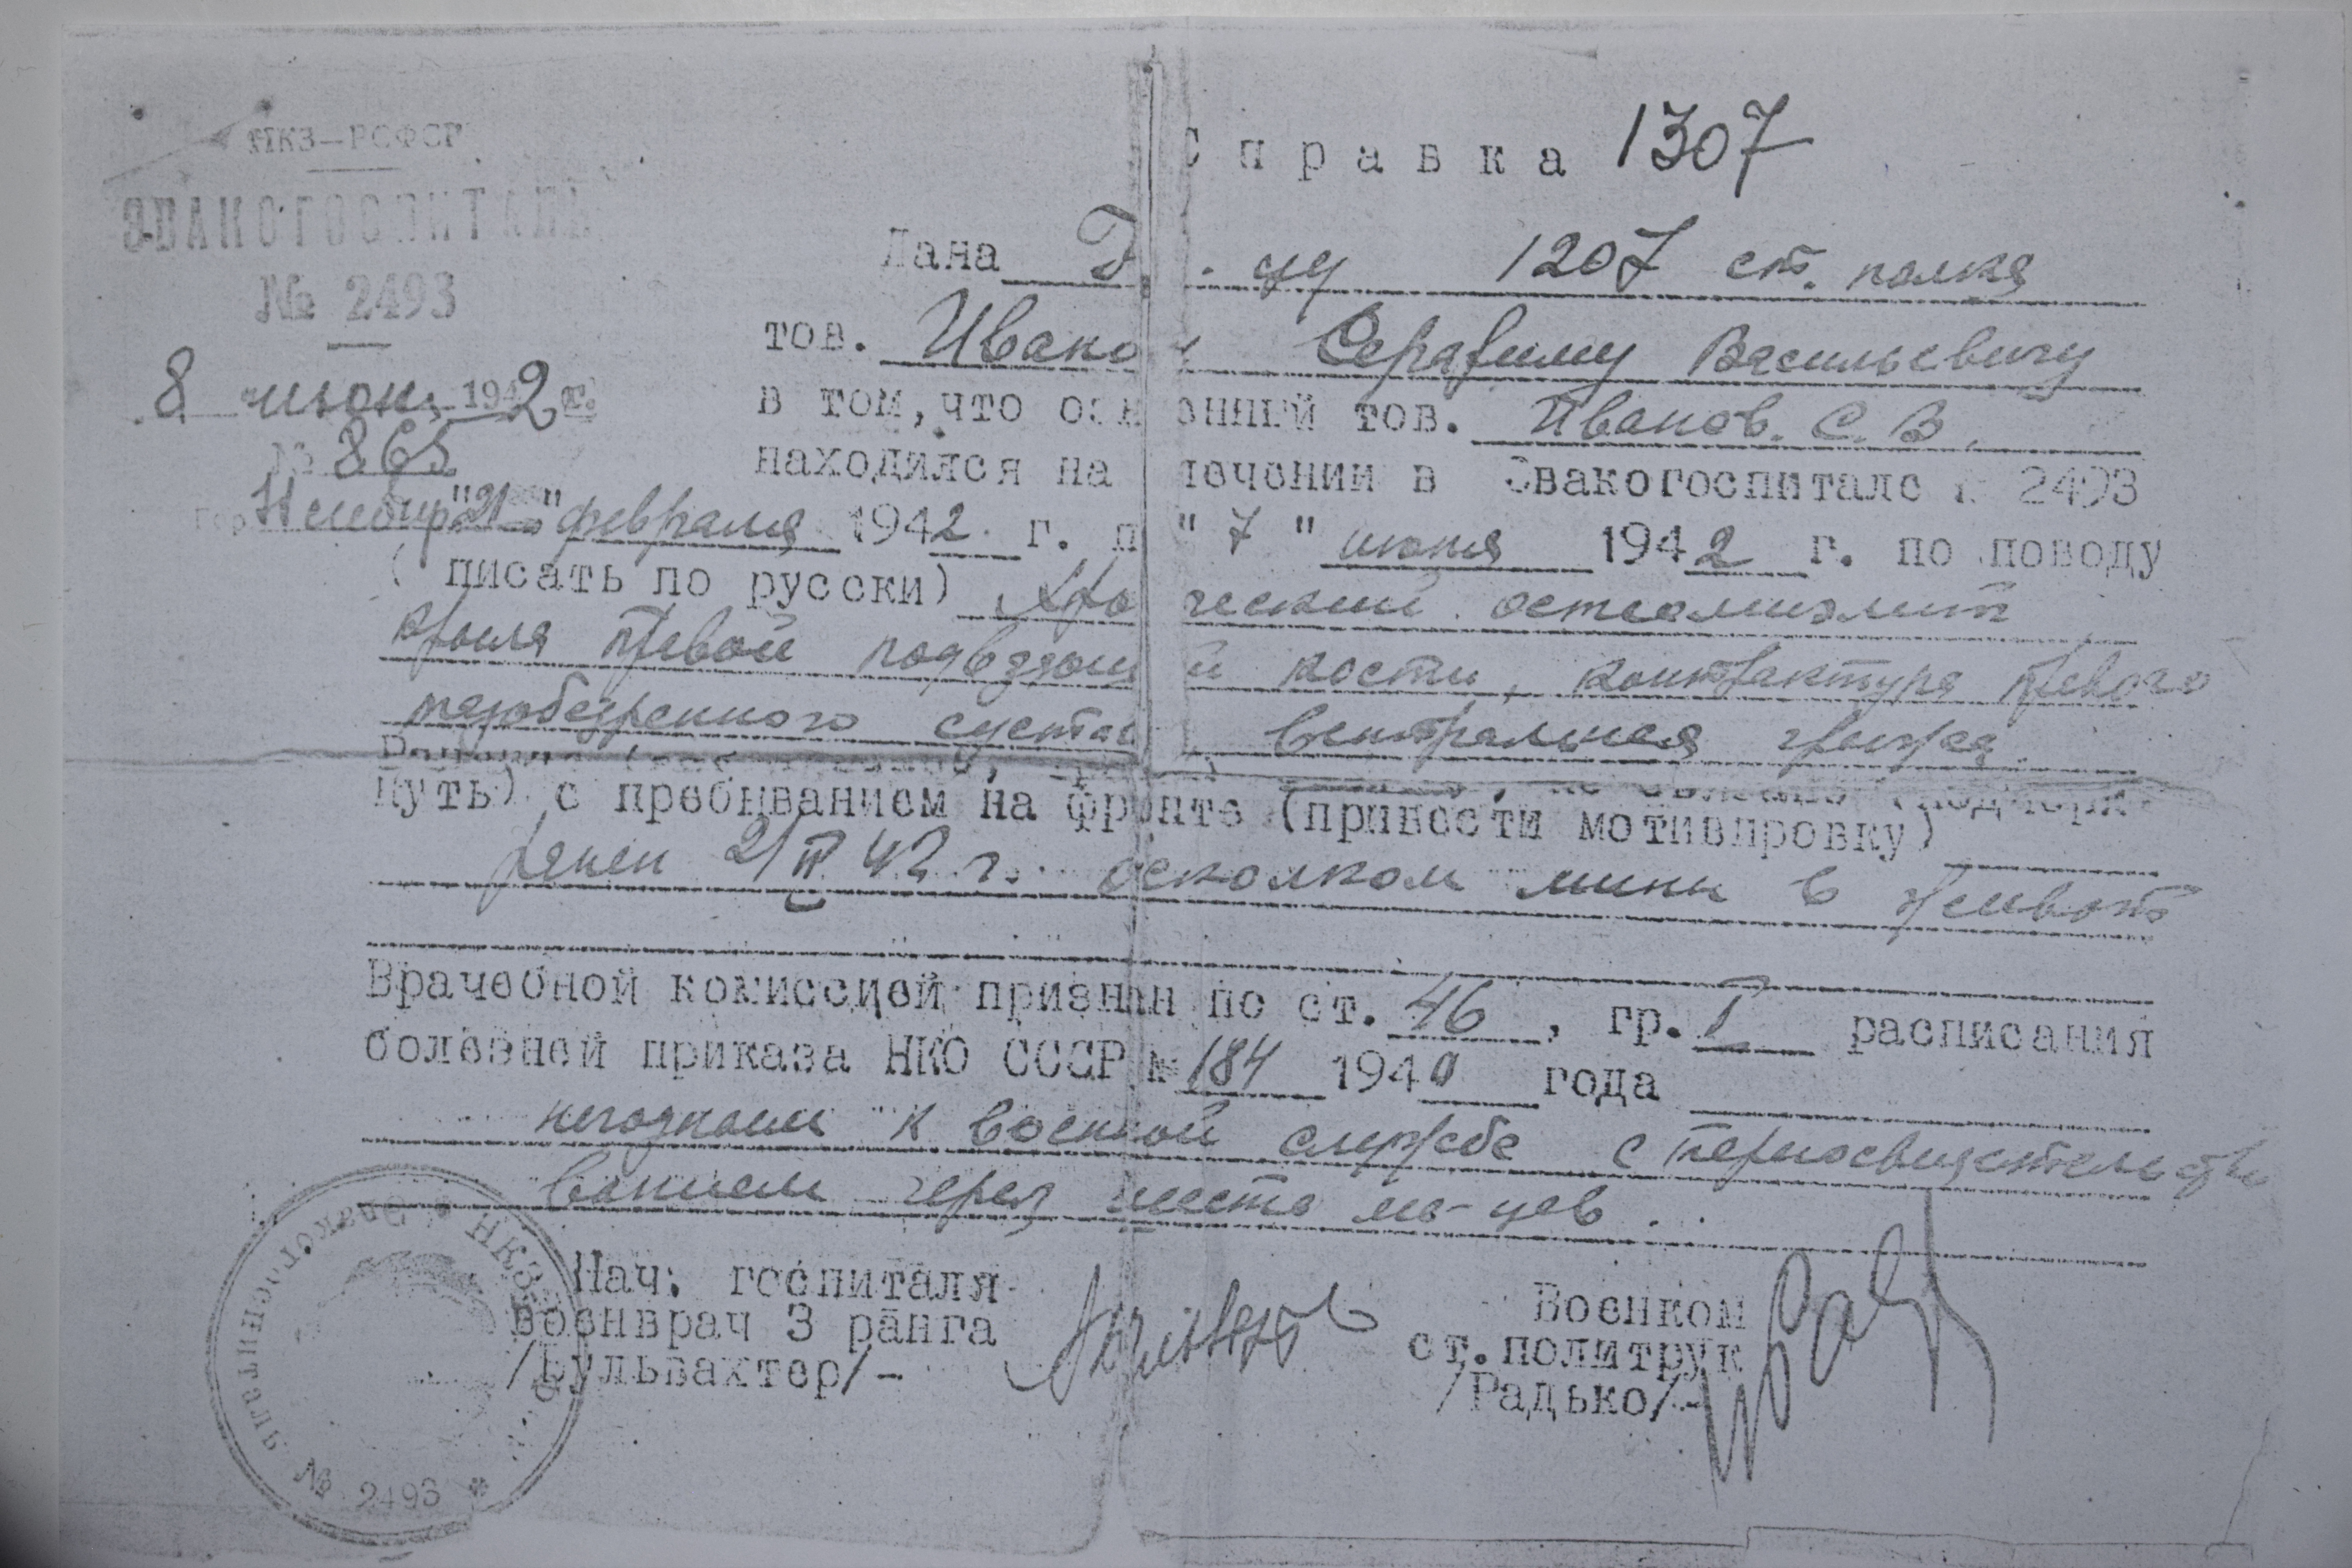 НКЗ—РСФСР
ЭВАКОГОСПИТАЛЬ
№ 2493
8 июня 1942 г.
№ 865
гор.
Справка 1307
Дана 1207 ст. полка
тов. Иванову Серафиму Васильевичу
в том, что означенный тов. Иванов. С. В.
находился на лечении в Эвакогоспитале № 2493
"21" февраля 1942 г. п "7" июня 1942 г. по поводу
(писать по русски) Хронический остеомиэлит
крыла правой подвздошной кости, контрактура правого
тазобедренного сустава, вентральная грыжа
нуть) с пребыванием на фронте (привести мотивировку)
ранен 2/II 42 г. осколком мины в живот
Врачебной комиссией признан по ст. 46, гр. I расписания
болезней приказа НКО СССР № 184 1940 года
негодным к военной службе с переосвидетельство
ванием через шесть ме-цев.
Нач. госпиталя Военком
военврач 3 ранга ст. политрук
/Бульвахтер/- /Радько/-
НКЗ Эвакогоспиталь № 2493 *